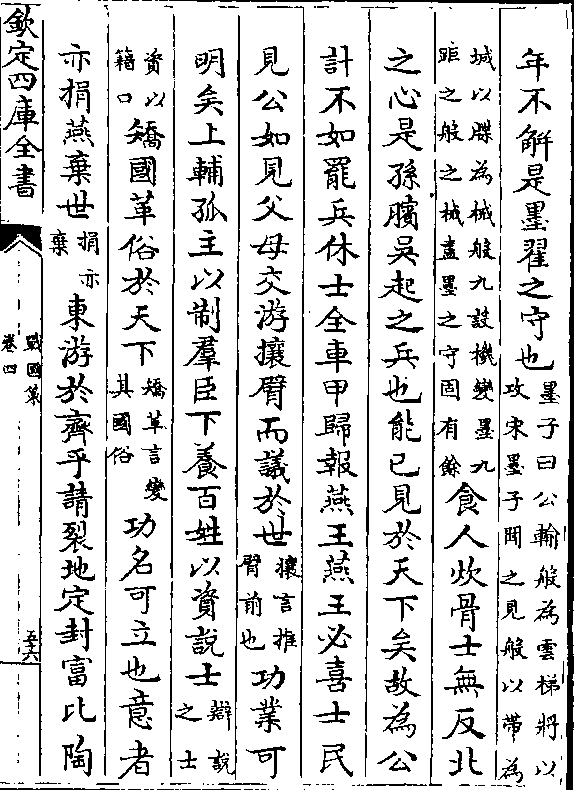 年不解是墨翟之守也墨子曰公輸般為雲梯將以
攻宋墨子聞之見般以帶為
城以牒為械般九設機變墨九
距之般之械盡墨之守固有餘食人炊骨士無反北
之心是孫臏吳起之兵也能已見於天下矣故為公
計不如罷兵休士全車甲歸報燕王燕王必喜士民
見公如見父母交游攘臂而議於世攘言推
臂前也功業可
明矣上輔孤主以制羣臣下養百姓以資說士辯說
之士
資以
籍口矯國革俗於天下矯革言變
其國俗功名可立也意者
亦捐燕棄世捐亦
棄東游於齊乎請裂地定封富比陶
欽定四庫全書
戰國策
卷四
五六